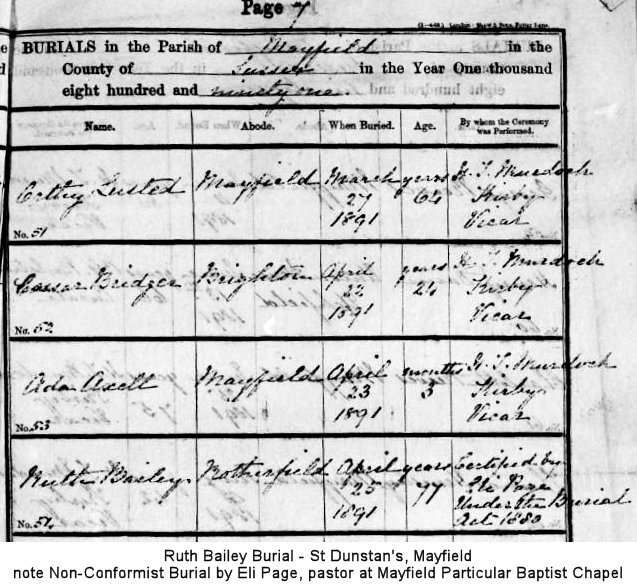 Page 7
BURIALS in the Parish of Mayfield in the
County of Sussex in the Year One thousand
eight hundred and ninety one.
Name. Abode. When Buried. Age. By whom the Ceremony was Performed.
Lusted Mayfield March 27 1891 years 64 H. T. Murdoch Kirby Vicar
No. 51
Caesar Bridger Brighton April 22 1891 years 24 H. T. Murdoch Kirby Vicar
No. 52
Ada Axell Mayfield April 23 1891 months 3 H. T. Murdoch Kirby Vicar
No. 53
Ruth Bailey Rotherfield April 25 1891 years 77 Certified by Eli Page Under the Burial Act 1880
No. 54
Ruth Bailey Burial - St Dunstan's, Mayfield
note Non-Conformist Burial by Eli Page, pastor at Mayfield Particular Baptist Chapel